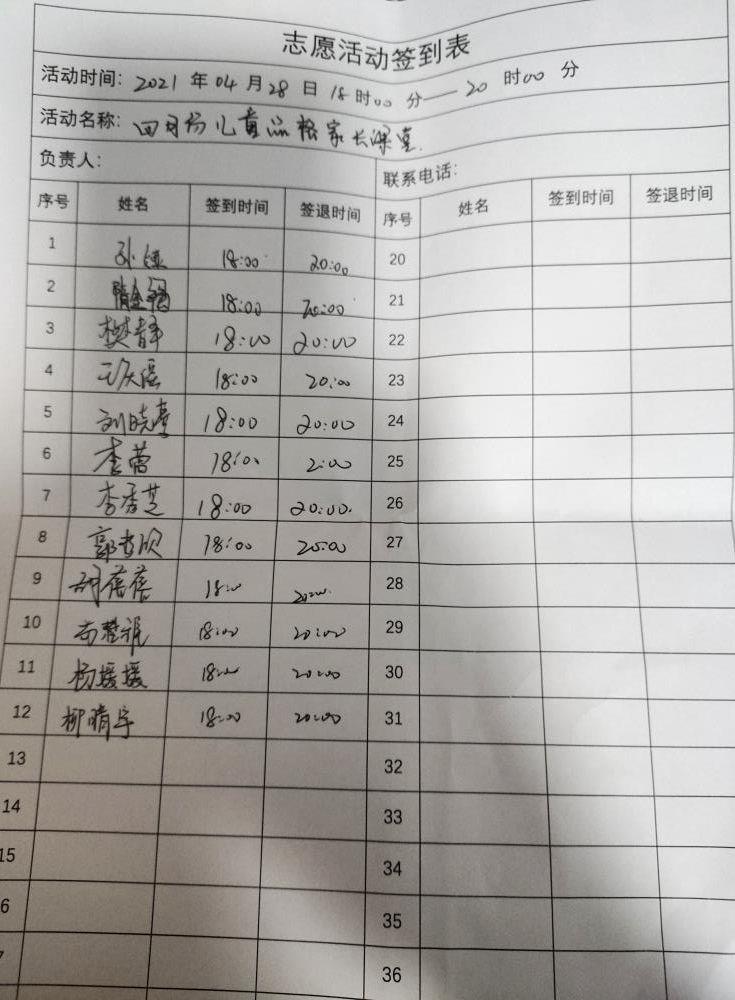 志愿活动签到表
活动时间：2021 年 04 月 28 日 18 时00 分—— 20 时00 分
活动名称：四月份儿童品格家长课堂.
负责人： 联系电话：
序号 姓名 签到时间 签退时间 序号 姓名 签到时间 签退时间
1 孙 18:00 20:00 20
2 18:00 20:00 21
3 樊静 18:00 20:00 22
4 18:00 20:00 23
5 刘晓 18:00 20:00 24
6 李蕾 18:00 2:00 25
7 李秀芝 18:00 20:00. 26
8 郭 18:00 20:00 27
9 胡蓓蓓 18:00 20:00 28
10 18:00 20:00 29
11 杨媛媛 18:00 20:00 30
12 柳晴宇 18:00 20:00 31
13 32
14 33
15 34
6 35
7 36